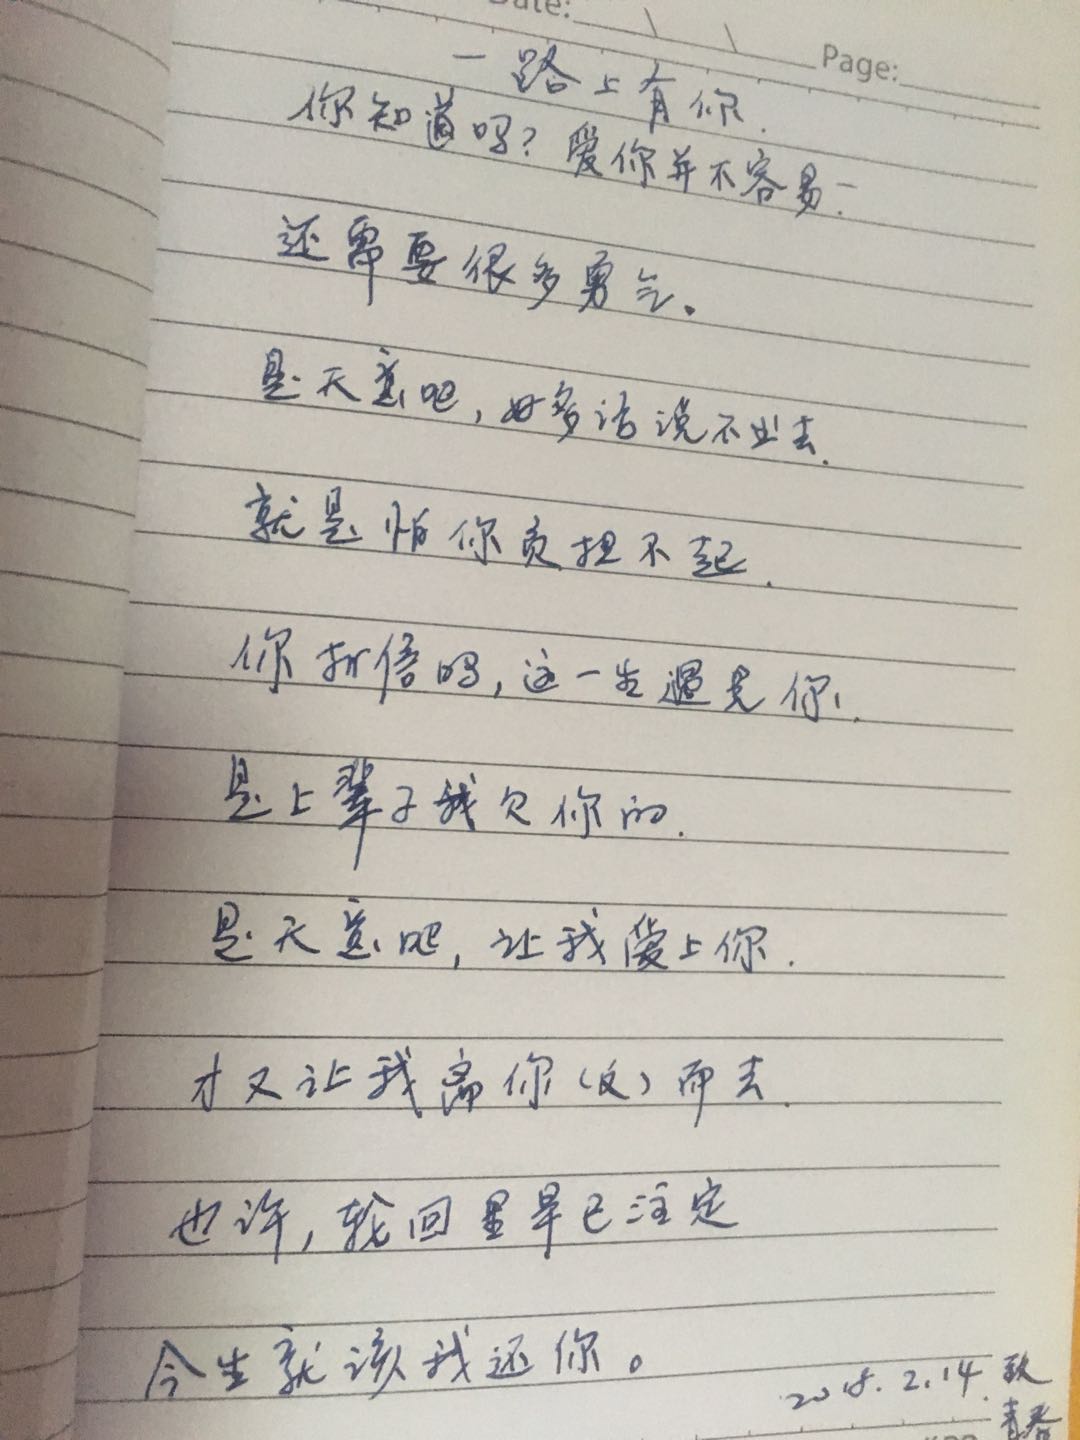 Date:
Page:
一路上有你.
你知道吗？爱你并不容易.
还需要很多勇气。
是天意吧,好多话说不出去.
就是怕你负担不起.
你相信吗,这一生遇见你.
是上辈子我欠你的.
是天意吧,让我爱上你.
才又让我离你(反)而去.
也许,轮回里早已注定
今生就该我还你。
2018.2.14 致
青春